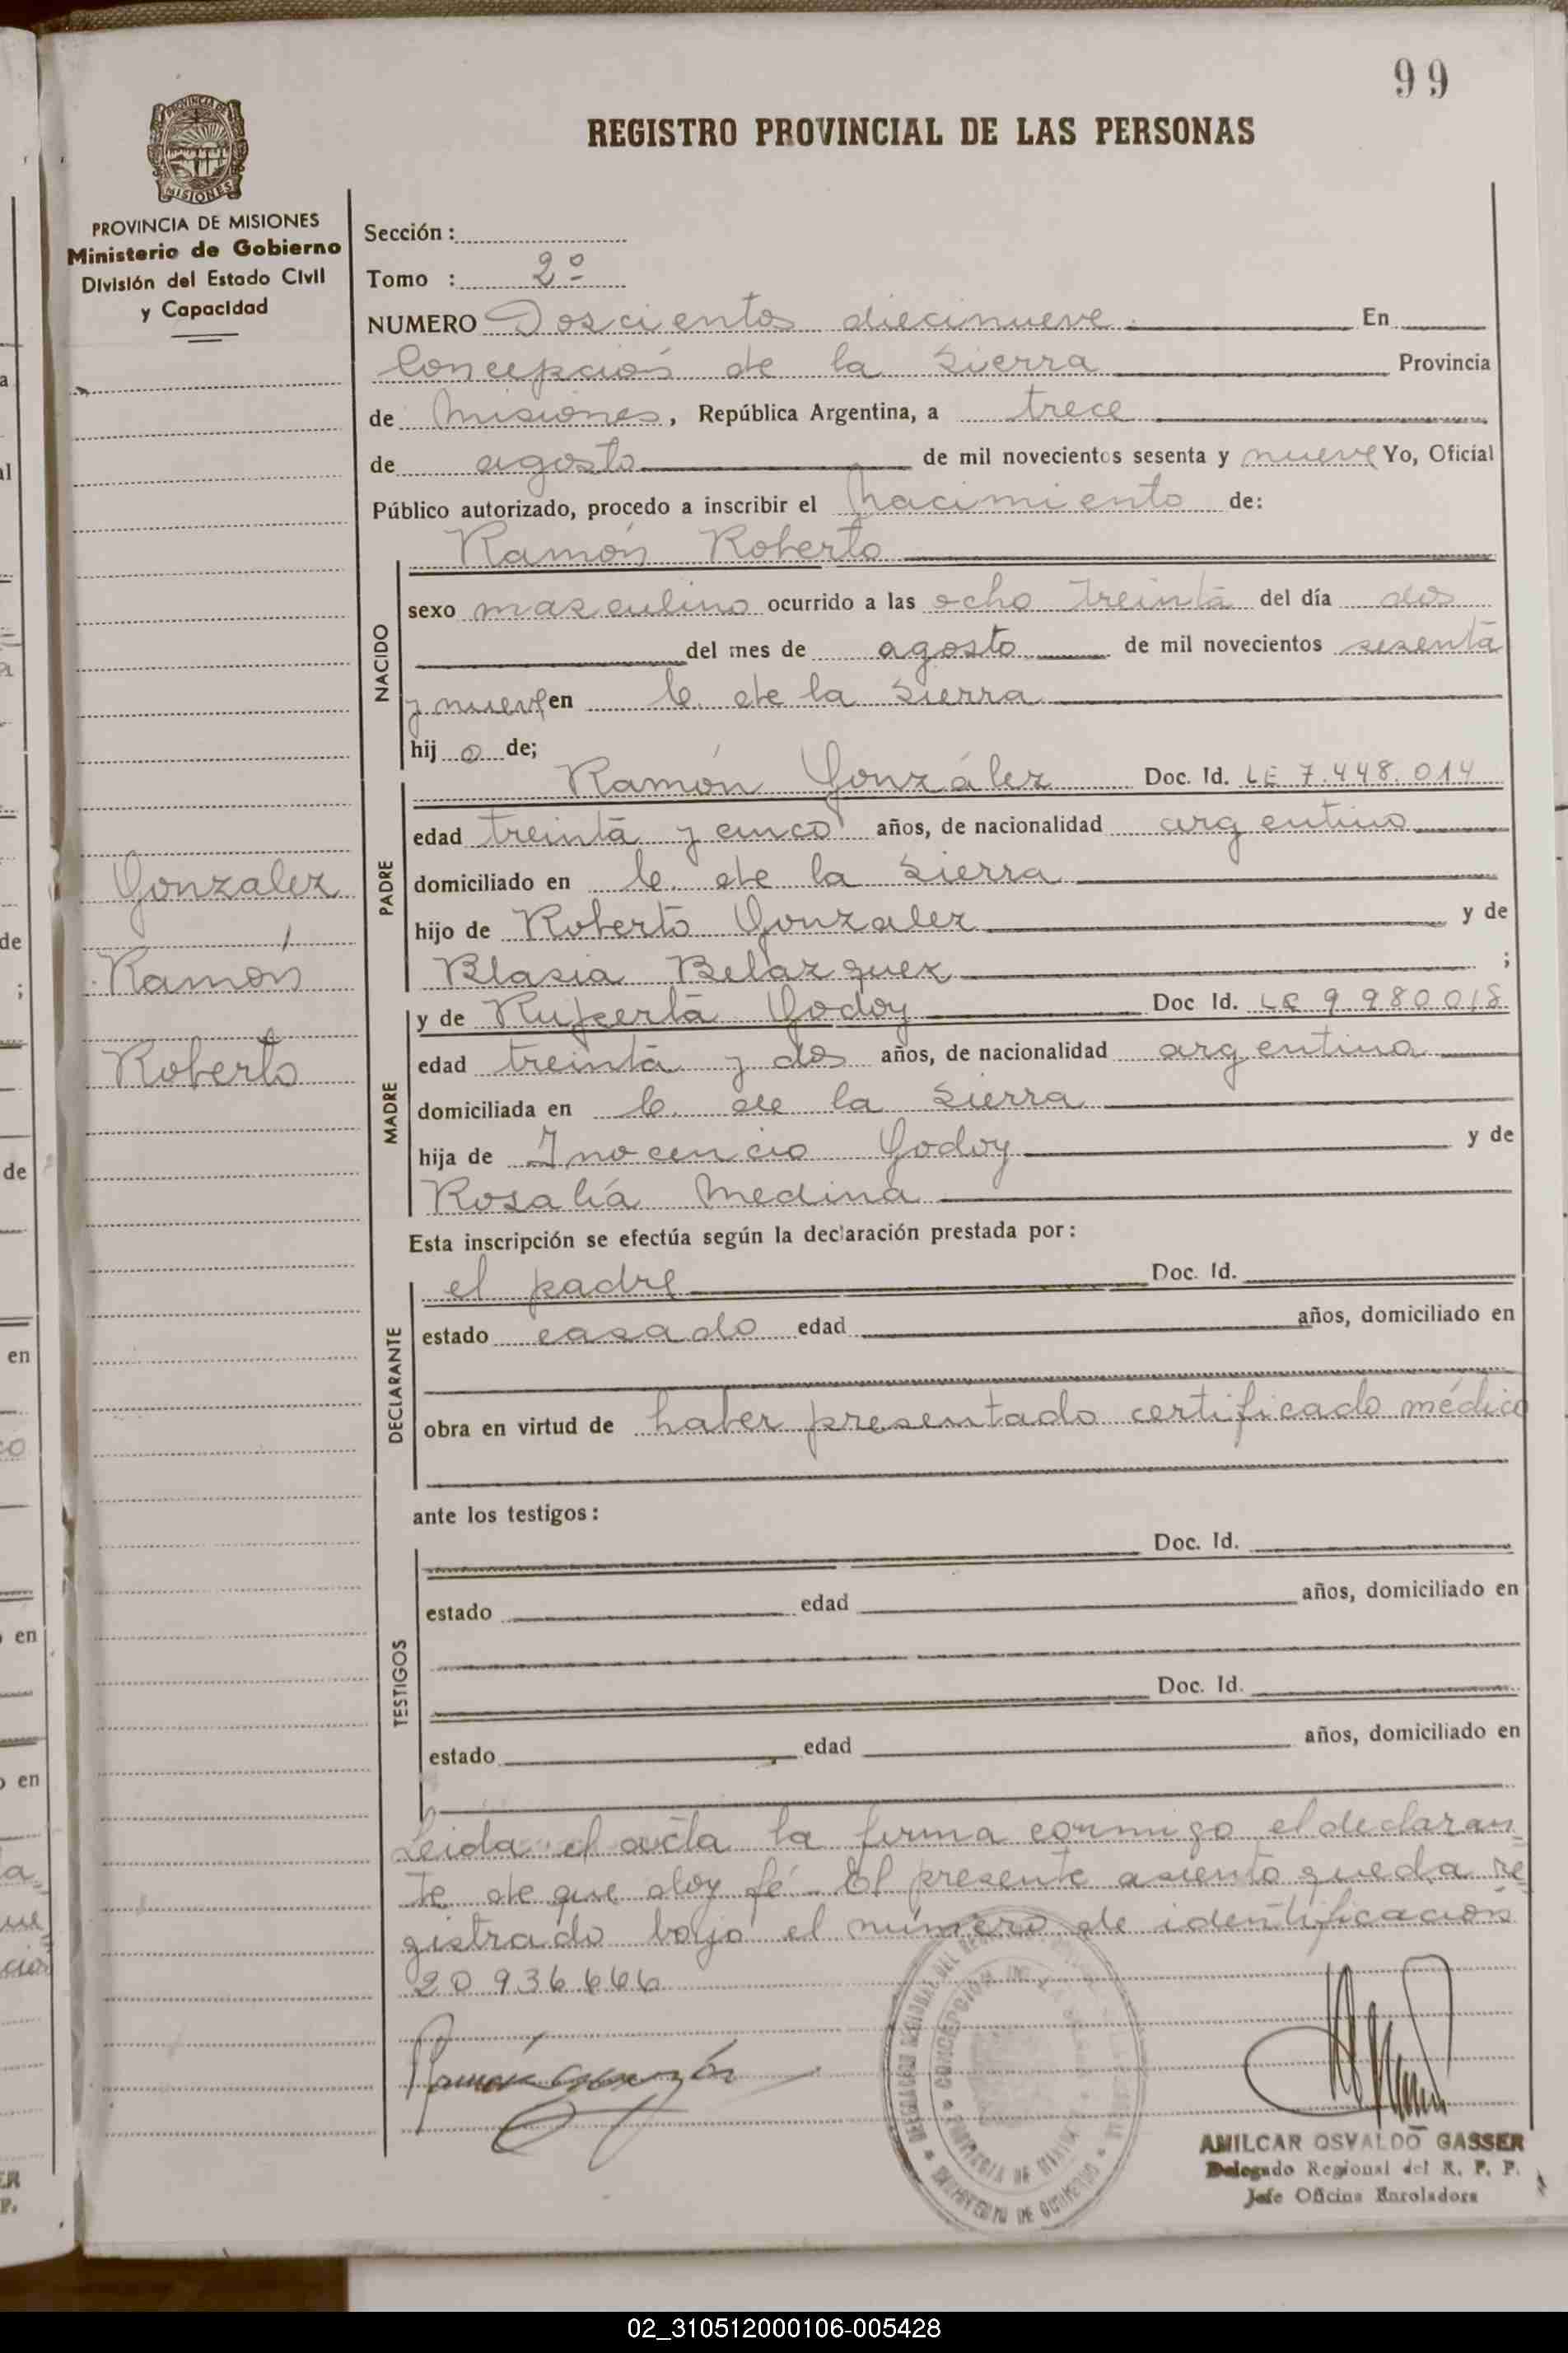 99
REGISTRO PROVINCIAL DE LAS PERSONAS
PROVINCIA DE MISIONES
Ministerio de Gobierno
División del Estado Civil
y Capacidad
Sección :
Tomo : 2º
NUMERO Doscientos diecinueve En
Concepción de la Sierra Provincia
de Misiones, República Argentina, a trece
de agosto de mil novecientos sesenta y nueve Yo, Oficial
Público autorizado, procedo a inscribir el Nacimiento de:
Ramón Roberto
NACIDO
sexo masculino ocurrido a las ocho treinta del día dos
del mes de agosto de mil novecientos sesenta
y nueve en C. de la Sierra
hij o de;
Ramón González Doc. Id. LE 7.448.014
PADRE
edad treinta y cinco años, de nacionalidad argentino
domiciliado en C. de la Sierra
hijo de Roberto Gonzalez y de
Blasia Belazquez ;
y de Ruperta Godoy Doc Id. LC 9 980 018
MADRE
edad treinta y dos años, de nacionalidad argentina
domiciliada en C. de la Sierra
hija de Inocencio Godoy y de
Rosalía Medina
Esta inscripción se efectúa según la declaración prestada por :
el padre Doc. Id.
DECLARANTE
estado casado edad años, domiciliado en
obra en virtud de haber presentado certificado médico
ante los testigos :
Doc. Id.
TESTIGOS
estado edad años, domiciliado en
Doc. Id.
estado edad años, domiciliado en
Leida el acta la firma conmigo el declaran
te de que doy fé. El presente asiento queda re
gistrado bajo el número de identificación
20.936.666
Gonzalez
Ramón
Roberto
AMILCAR OSVALDO GASSER
Delegado Regional del R. P. P.
Jefe Oficina Enroladora
02_310512000106-005428